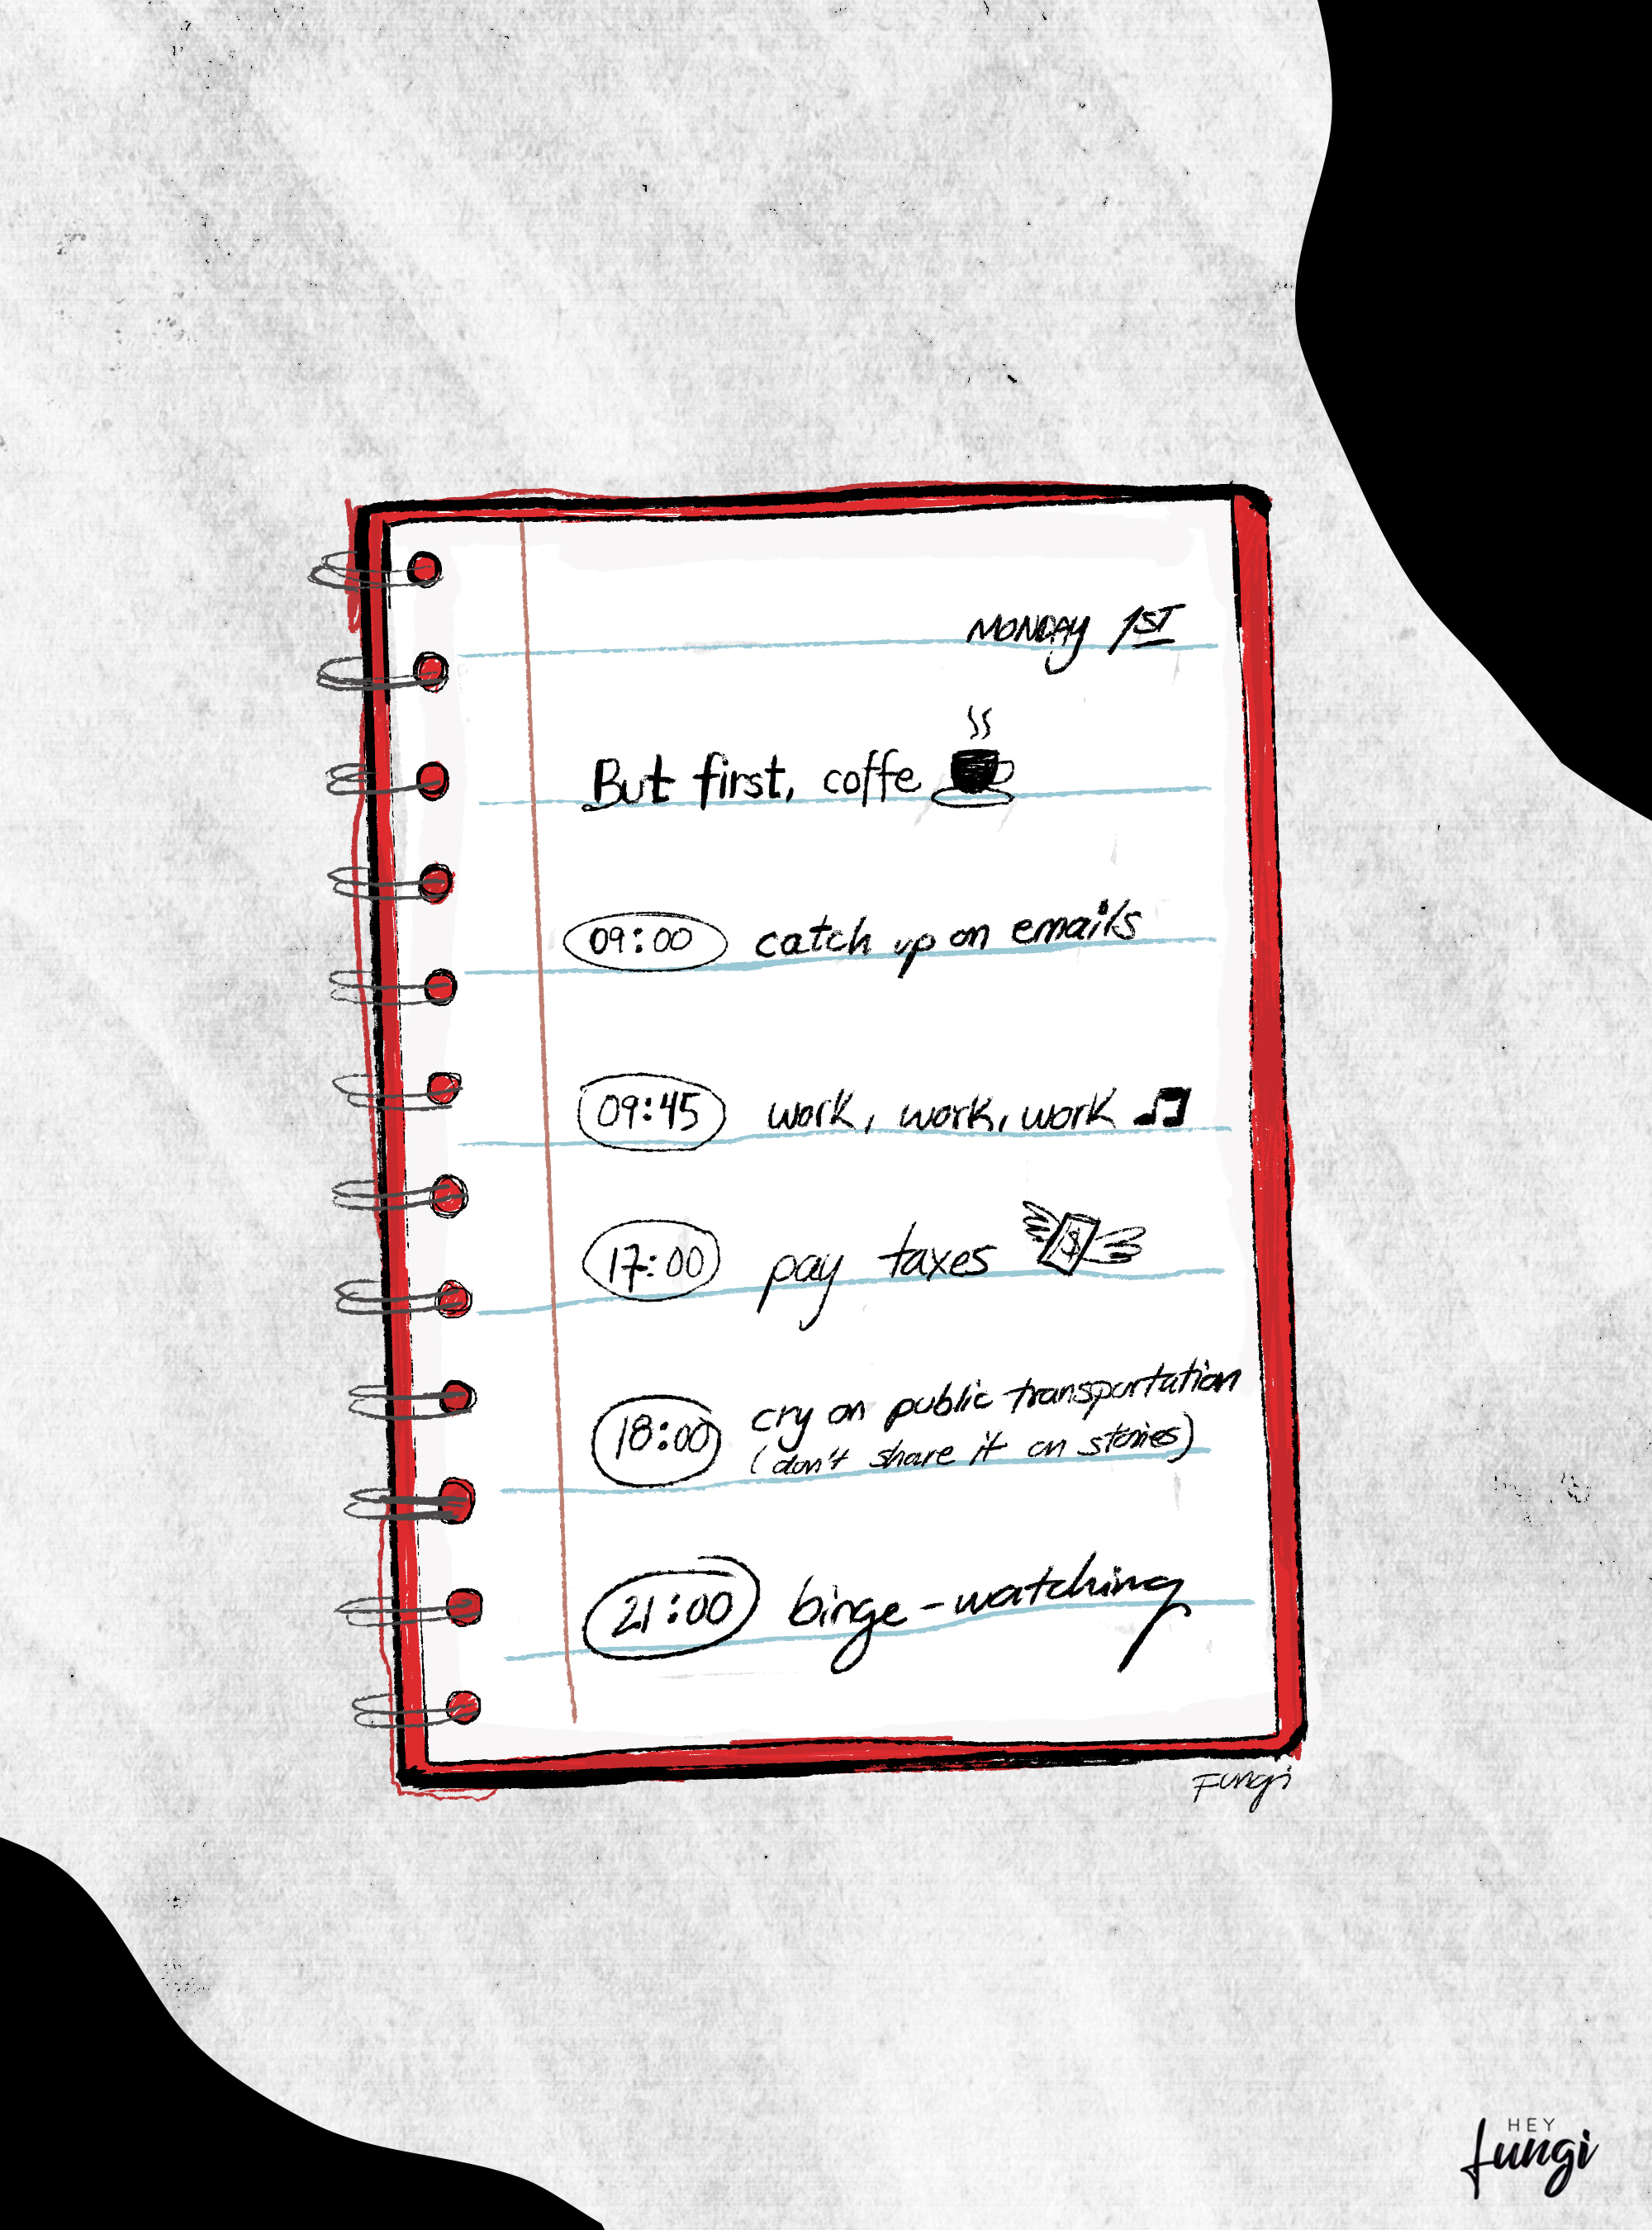 MONDAY 1ST
But first, coffe
09:00 catch up on emails
09:45 work, work, work
17:00 pay taxes
$
18:00 cry on public transportation
(don't share it on stories)
21:00 binge-watching
Fungi
HEY
fungi